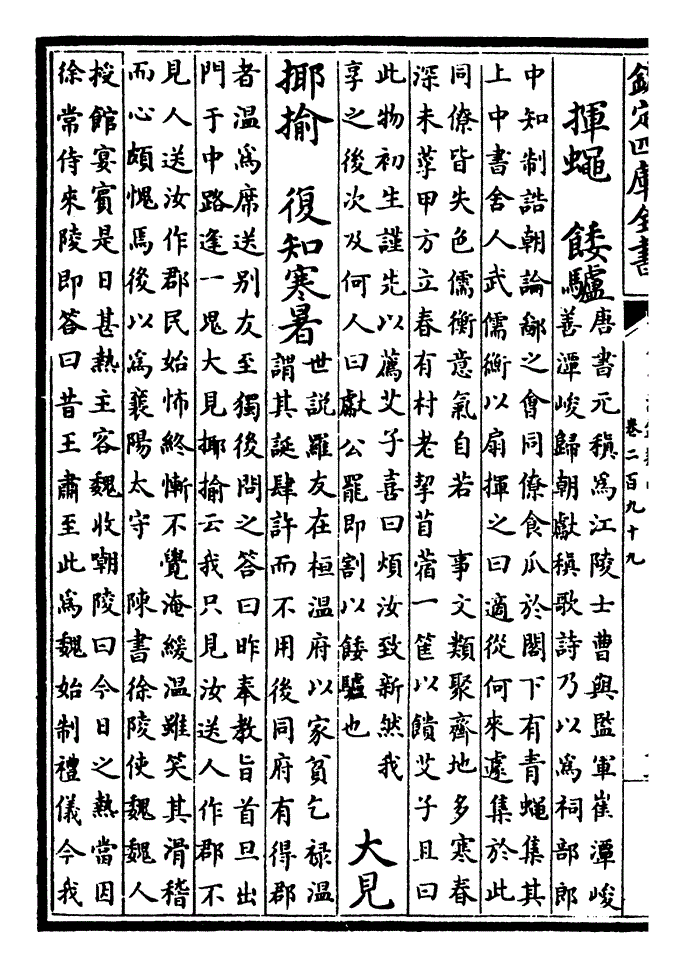 欽定四庫全書
卷二百九十九
揮蠅 餧驢
唐書元稹為江陵士曹與監軍崔潭峻
善潭峻歸朝獻稹歌詩乃以為祠部郎
中知制誥朝論鄙之會同僚食瓜於閣下有青蠅集其
上中書舍人武儒衡以扇揮之曰適從何來遽集於此
同僚皆失色儒衡意氣自若 事文類聚齊地多寒春
深未莩甲方立春有村老挈苜蓿一筐以饋艾子且曰
此物初生謹先以薦艾子喜曰煩汝致新然我
享之後次及何人曰獻公罷即割以餧驢也
大見
揶揄 復知寒暑
世說羅友在桓溫府以家貧乞祿溫
謂其誕肆許而不用後同府有得郡
者温為席送别友至獨後問之答曰昨奉教旨首旦出
門于中路逢一鬼大見揶揄云我只見汝送人作郡不
見人送汝作郡民始怖終慚不覺淹緩溫雖笑其滑稽
而心頗愧焉後以為襄陽太守 陳書徐陵使魏魏人
授館宴賓是日甚熱主客魏收嘲陵曰今日之熱當因
徐常侍來陵即答曰昔王肅至此為魏始制禮儀今我